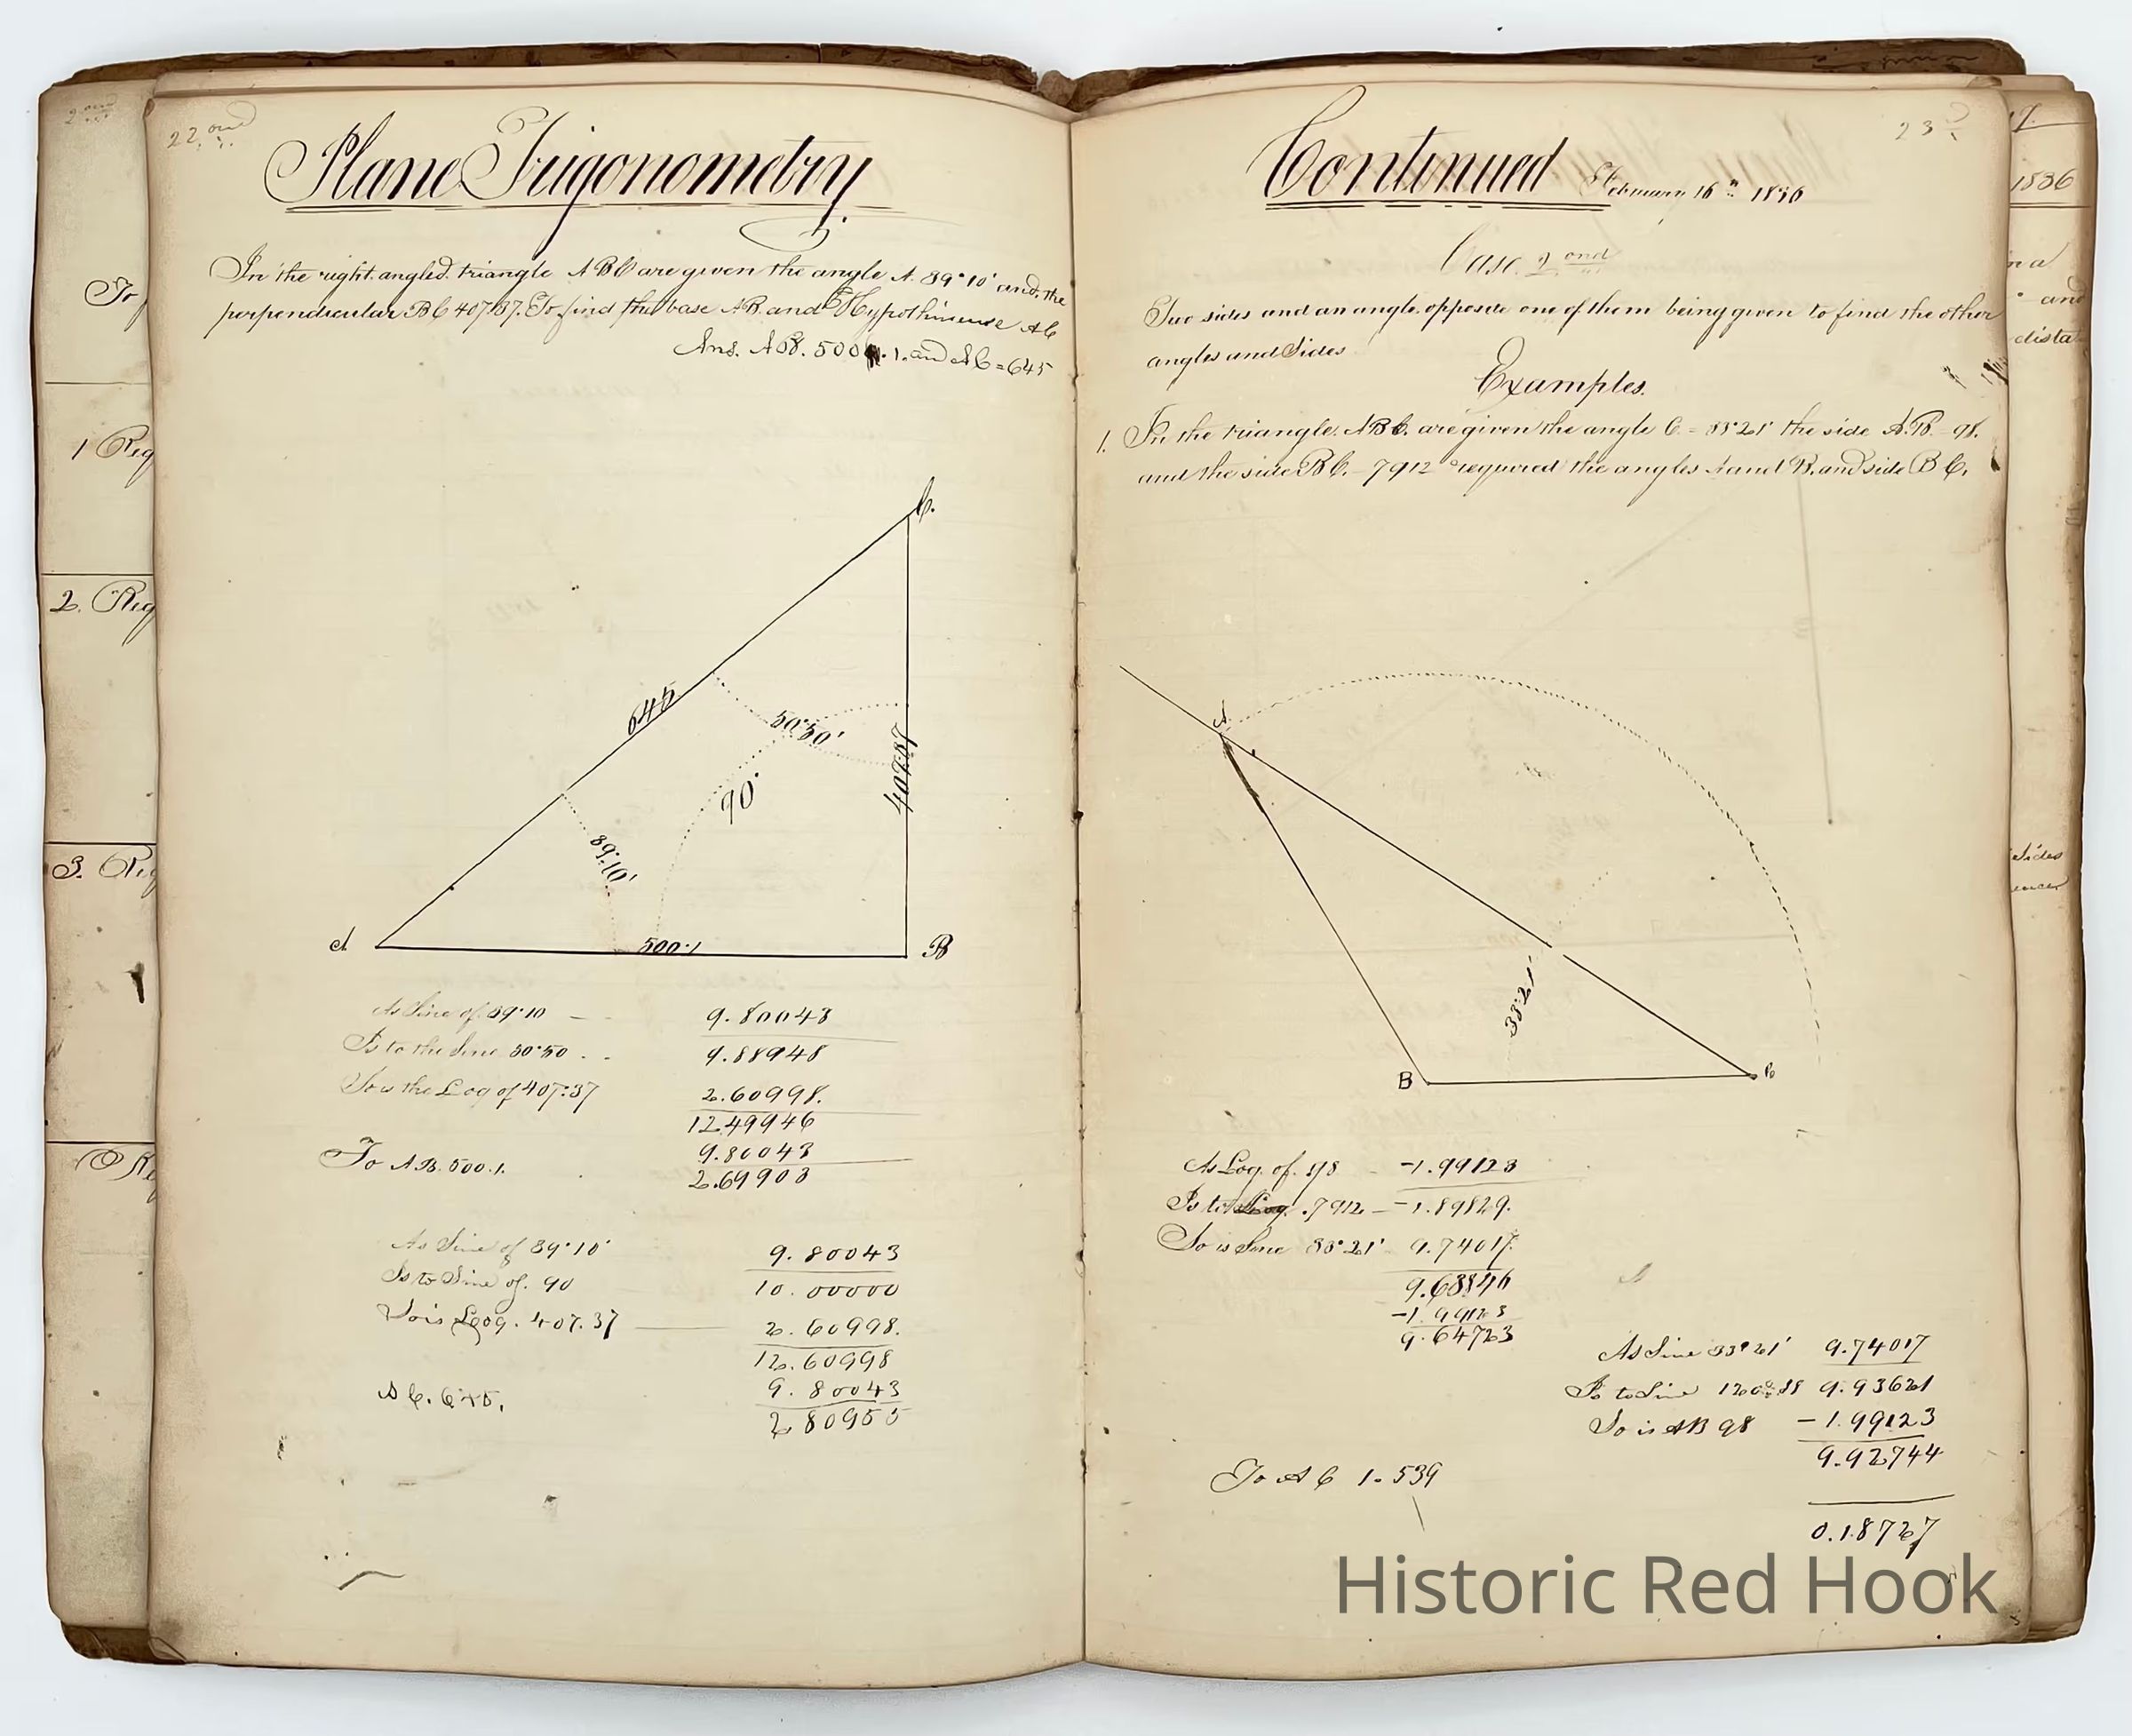 22.ond
Plane Trigonometry
In the right angled triangle ABC are given the angle A. 39°10' and the
perpendicular BC 407.37. To find the base AB. and Hypothinuse AC
Ans. AB. 500.1. and AC = 645
C.
645
50°50'
407.37
90°
39°.10'
A
500.1
B
As Sine of 39°10 9.80043
Is to the Sine 50°50 9.88948
So is the Log of 407.37 2.60998.
12.49946
9.80043
To AB. 500.1. 2.69903
As Sine of 39°10' 9.80043
Is to Sine of. 90 10.00000
So is Log. 407.37 2.60998.
12.60998
9.80043
AC. 645. 2.80955
23
Continued February 16th 1836
Case. 2ond
Two sides and an angle opposite one of them being given to find the other
angles and Sides
Examples.
1. In the triangle. ABC. are given the angle C = 33°21' the side A.B. = 98.
and the side BC. - 7912 required the angles A and B. and side BC.
A
33°21'
B
C
As Log. of. 98 -1.99123
Is to .7912 -1.89829.
So is Sine 33°21' 9.74017.
9.63846
-1.99123
9.64723
As Sine 33°21' 9.74017
Is to Sine 9.93621
So is AB 98 -1.99123
9.92744
To AC 1.539
0.18727
Historic Red Hook
To
1 Req
2. Req
3. Req
1836
and
dista
Sides